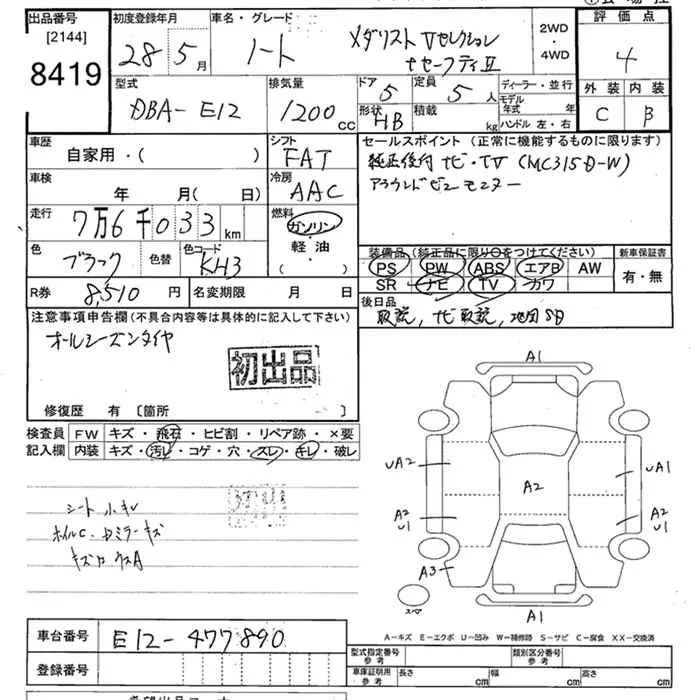 出品番号 初度登録年月 車名・グレード 評価点
[2144]
8419
28年5月 ノート メダリスト Vセレクション
+セーフティⅡ
2WD
・
4WD
4
型式 排気量 ドア 定員 ディーラー・並行 外装 内装
DBA-E12 1200cc 5 5人 モデル年式 年 C B
形状 積載 ハンドル 左・右
HB kg
車歴 シフト セールスポイント(正常に機能するものに限ります)
自家用・( ) FAT 純正後付 ナビ・TV (MC315D-W)
車検 冷房 アラウンドビューモニター
年 月(日) AAC
走行 燃料
7万6千033km ガソリン
軽・油
・( )
色 色替 色コード 装備品(純正品に限り○をつけてください) 新車保証書
ブラック KH3 PS PW ABS エアB AW 有・無
SR ナビ TV カワ
R券 8,510円 名変期限 月 日 後日品
取説, ナビ取説, 地図SD
注意事項申告欄(不具合内容等は具体的に記入して下さい)
オールシーズンタイヤ
初出品
修復歴 有 〔箇所 〕
検査員 FW キズ・飛石・ヒビ割・リペア跡・×要
記入欄 内装 キズ・汚レ・コゲ・穴・スレ・キレ・破レ
シート小キレ
ホイルC・Dミラーキズ
A1
UA2 UA1
A2
A2 U1 A2 U1
A3
スペア
A1
A-キズ E-エクボ U-凹み W-補修跡 S-サビ C-腐食 XX-交換済
車台番号 E12-477890
登録番号
型式指定番号 参考 類別区分番号 参考
車庫証明用 参考 長さ cm 幅 cm 高さ cm